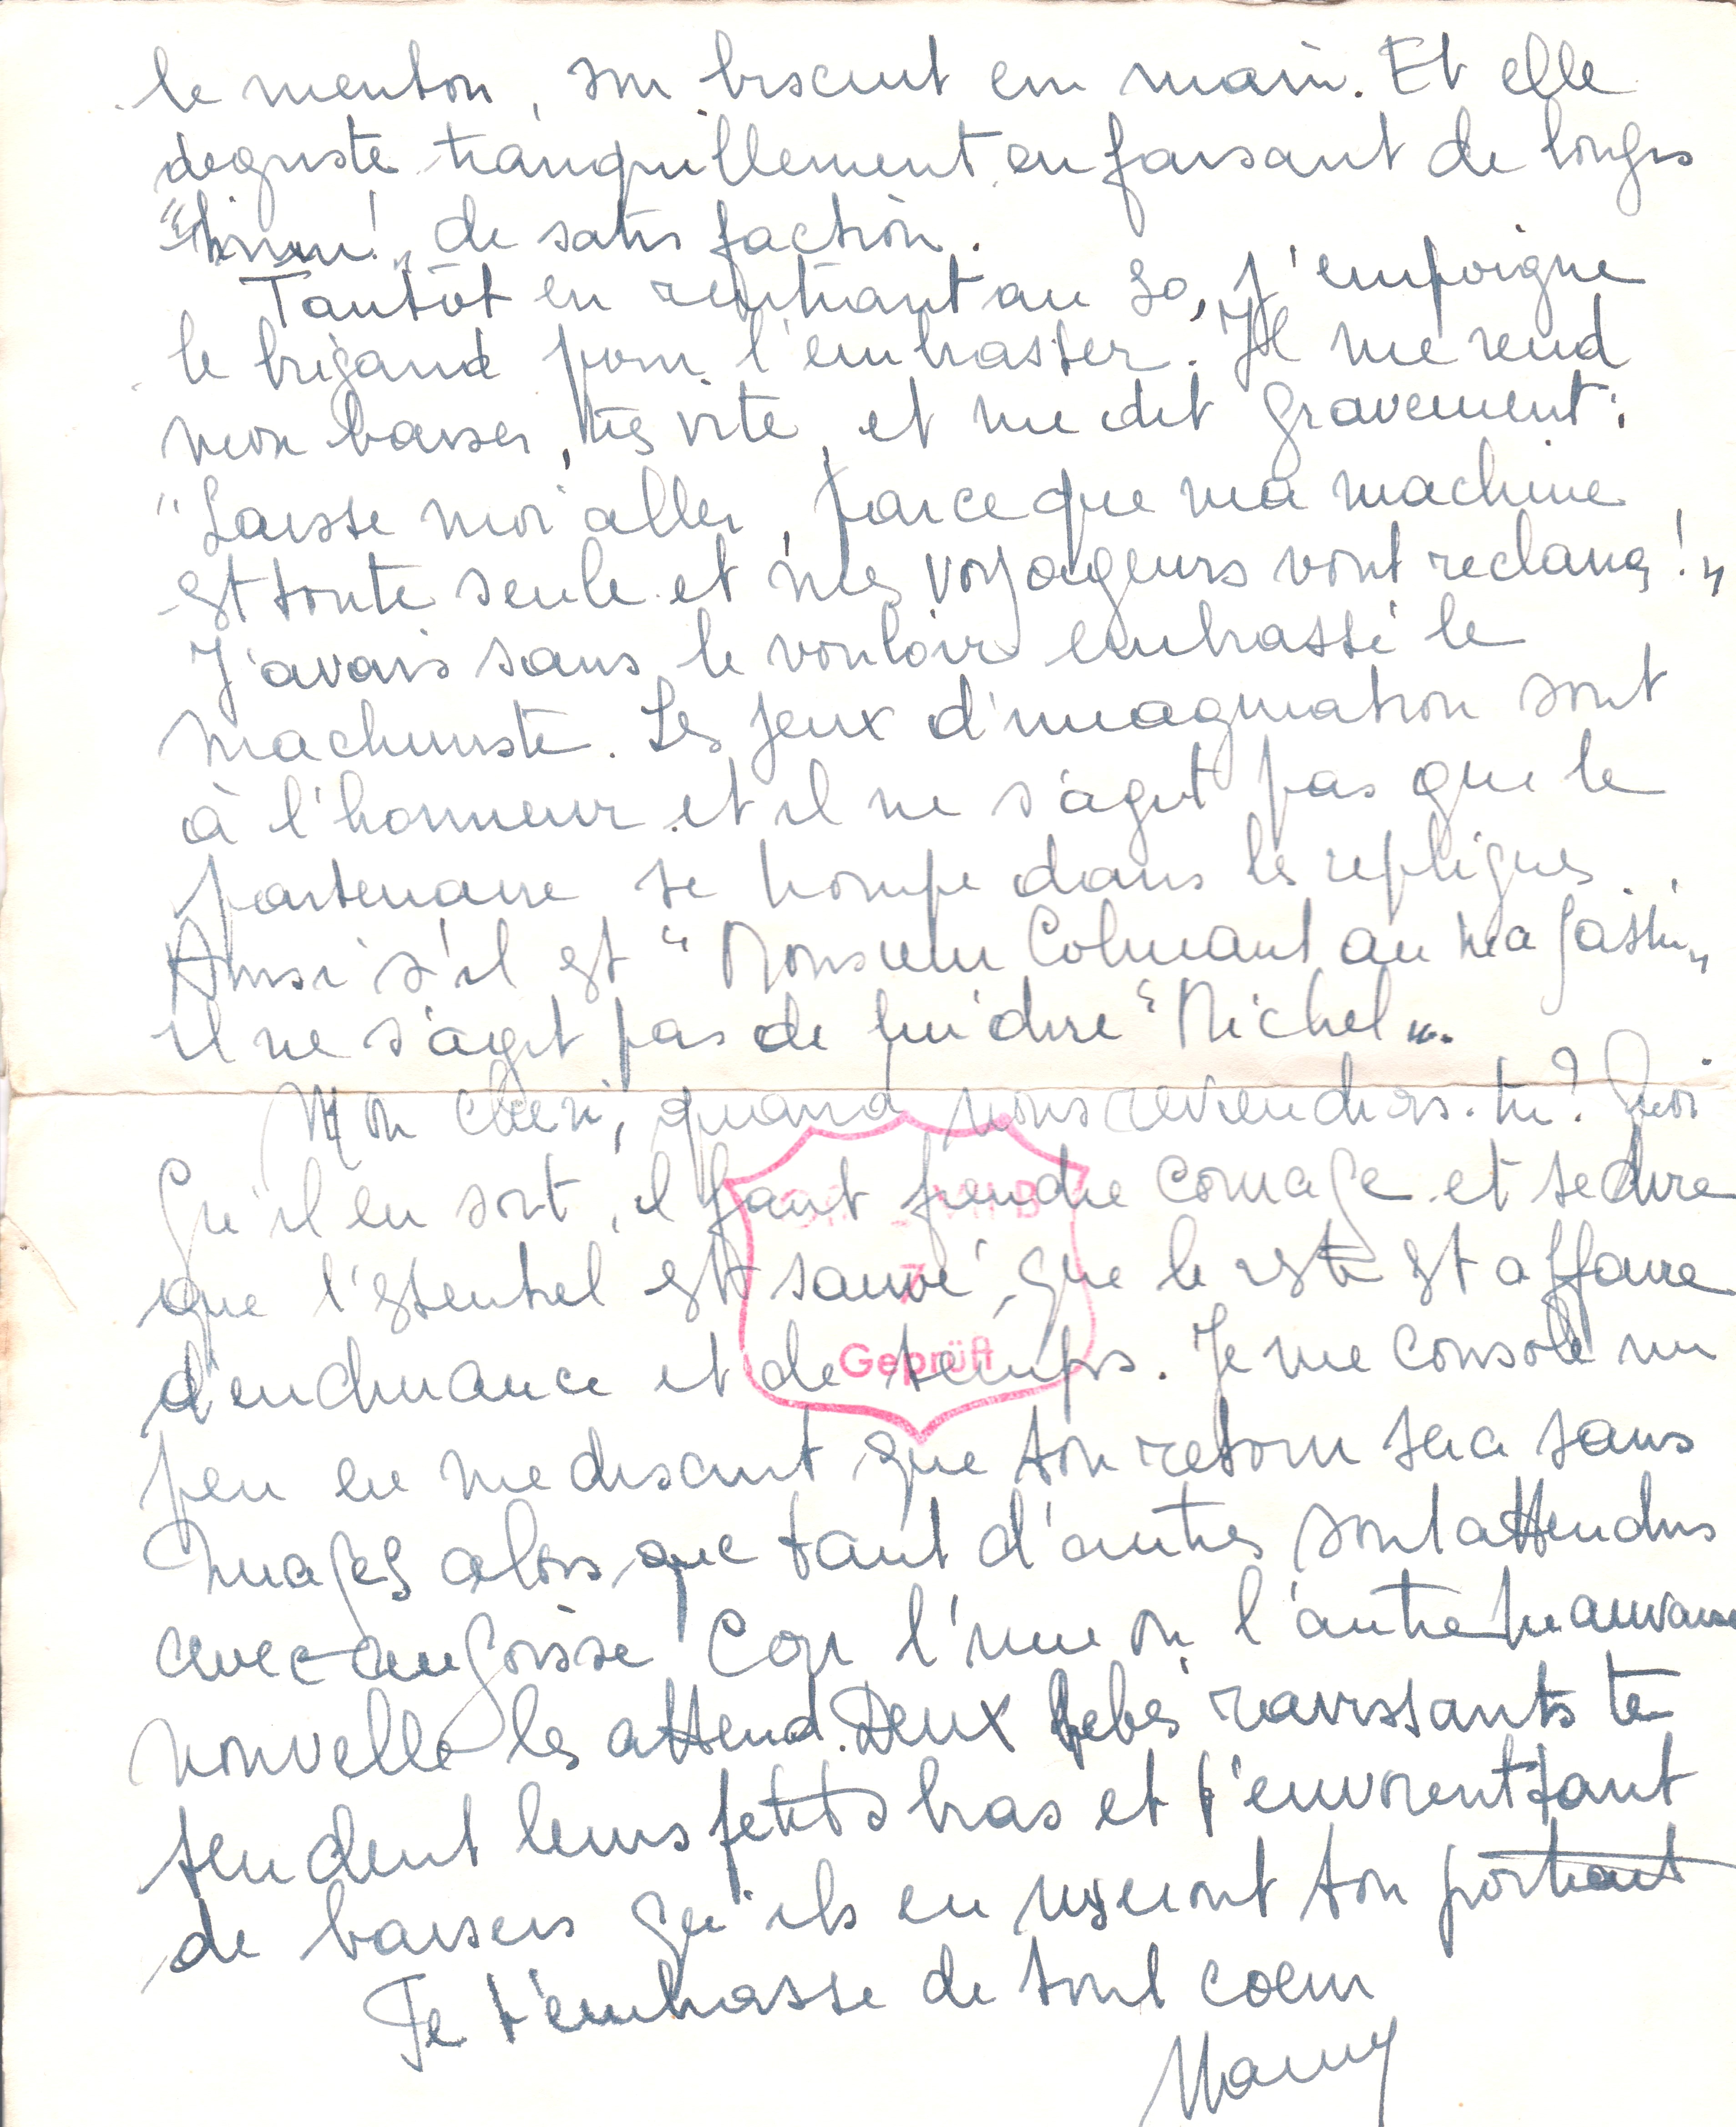 le menton, son biscuit en main. Et elle
deguste tranquillement en faisant de longs
"hmm!" de satisfaction.
Tantôt en rentrant au 30, j'empoigne
le brigand pour l'embrasser. Il me rend
mon baiser, très vite, et me dit gravement:
"Laisse moi aller, parce que ma machine
est toute seule et mes voyageurs vont reclamer!"
J'avais sans le vouloir embrassé le
machiniste. Les jeux d'imagination sont
à l'honneur et il ne s'agit pas que le
partenaire se trompe dans les repliques.
Ainsi s'il est "Monsieur Colmant au magasin"
il ne s'agit pas de lui dire "Michel".
Mon cheri, quand nous reviendras-tu? Quoi
qu'il en soit, il faut prendre courage et se dire
que l'essentiel est sauvé, que le reste est affaire
7
d'endurance et de temps. Je me console un
Geprüft
peu en me disant que ton retour sera sans
nuages alors que tant d'autres sont attendus
avec angoisse car l'une ou l'autre mauvaise
nouvelle les attend. Deux bébés ravissants te
tendent leurs petits bras et t'envoient tant
de baisers qu'ils en useront ton portrait
Je t'embrasse de tout coeur
Mamy